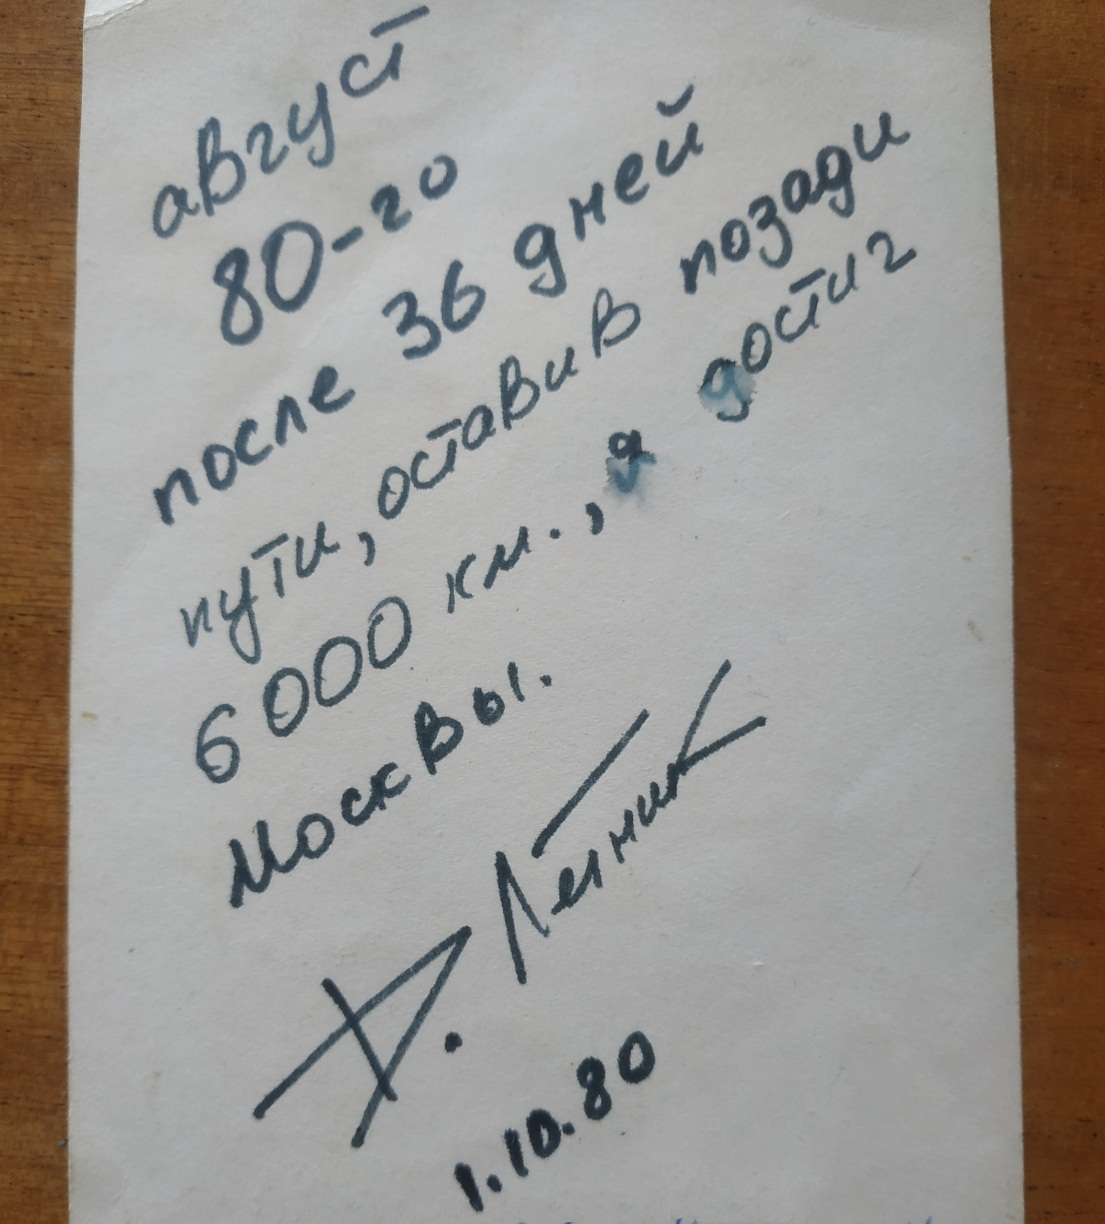 август
80-го
после 36 дней
пути, оставив позади
6000 км., я достиг
Москвы.
Летник
1.10.80